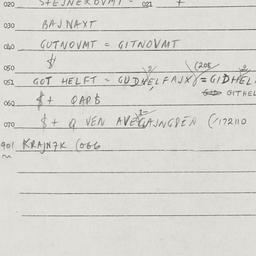 020 STEJNEROVMT - 021 +
030 BAJNAXT
040 GUTNOVMT = GITNOVMT
050 $
051 GOT HELFT = GUDHELFAJX = GIDHEL
GITHEL
060 $+ QAPS
070 $+ Q VEN AVEGAJNGDEN (/172110
901 KRAJNZK (066